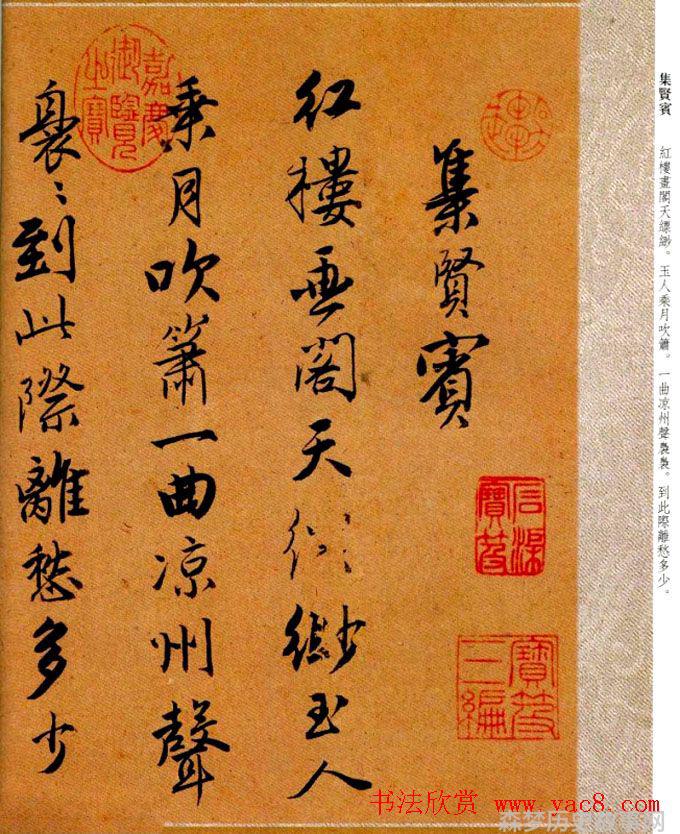 集賢賓　紅樓畫閣天縹緲。玉人乘月吹簫。一曲凉州聲裊裊。到此際離愁多少。
集賢賓
紅樓畫閣天縹緲玉人
乘月吹簫一曲凉州聲
裊〻到此際離愁多少
嘉慶御覽之寶
石渠寶笈
寶笈三編
书法欣赏 www.yac8.com